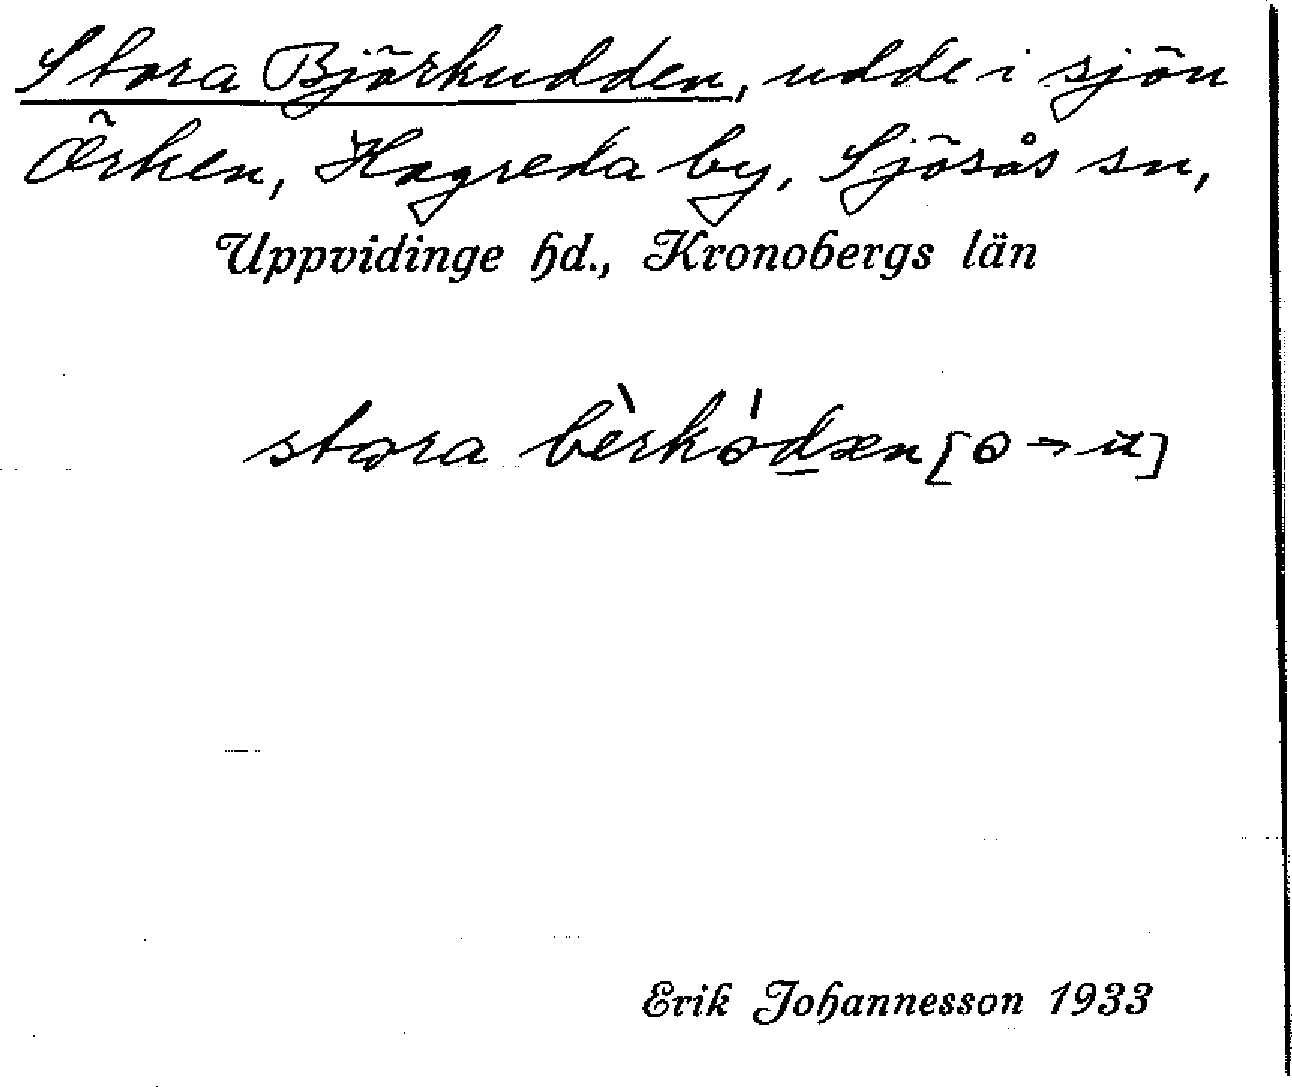 Stora Björkudden, udde i sjön
Örken, Hagreda by, Sjösås sn,
Uppvidinge hd., Kronobergs län
stora bèrkódæn [o → u]
Erik Johannesson 1933